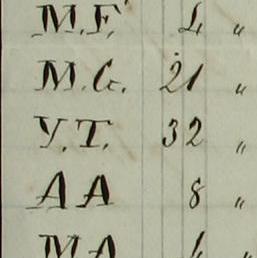 M.F. 4 "
M.G. 21 "
Y.T. 32 "
A A 8 "
M A 4 "